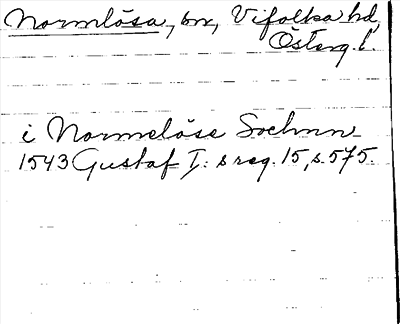 Normlösa, sn, Vifolka hd,
Österg. l.
i Normelöse Sochnn
1543 Gustaf I:s reg. 15, s. 575.